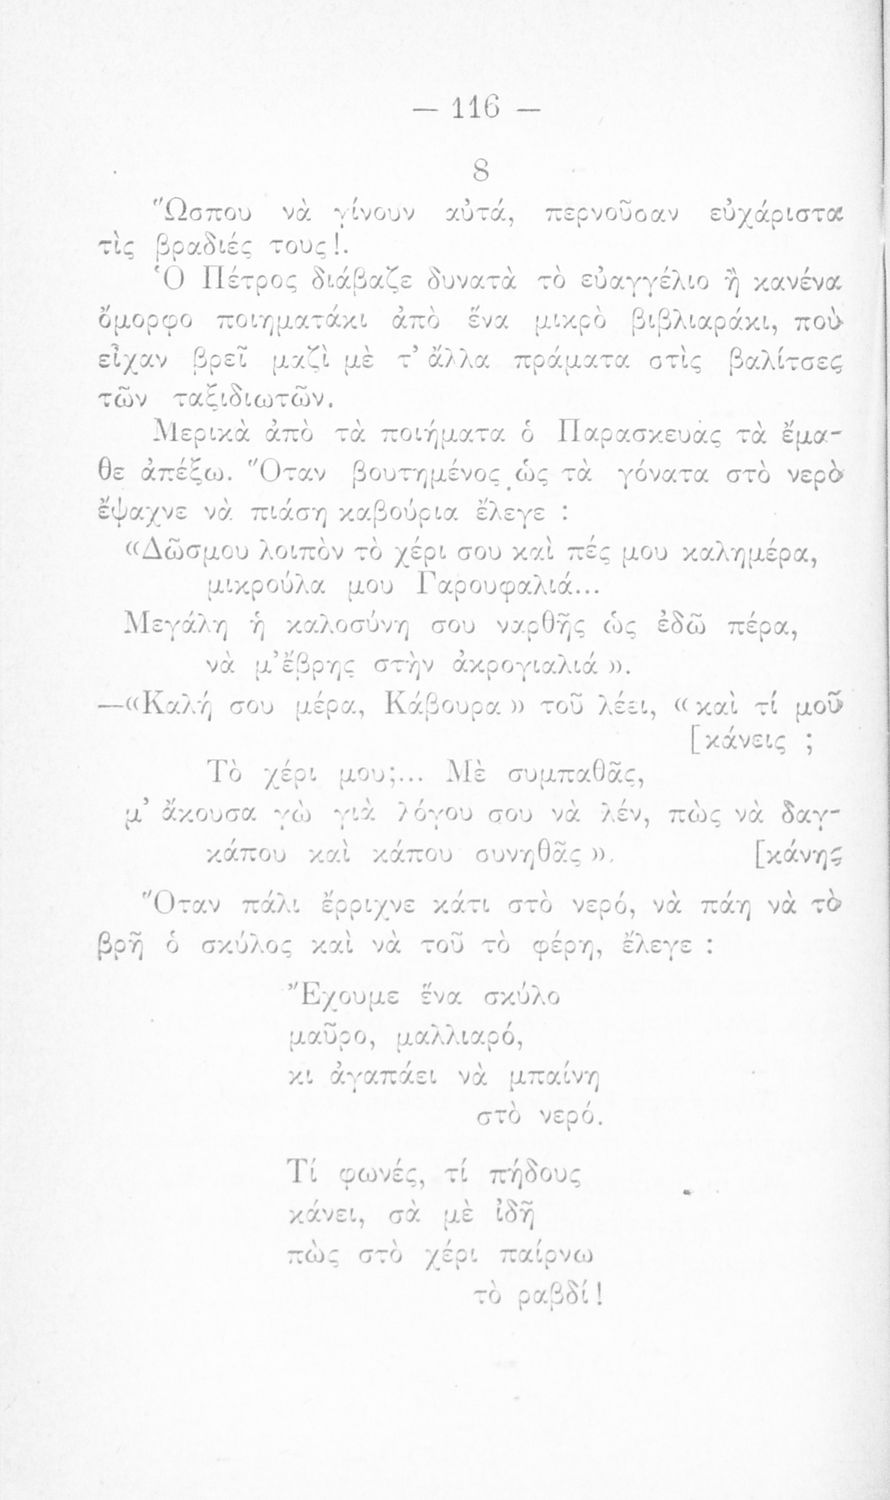 — 116 —
8
Ὥσπου νὰ γίνουν αὐτά, περνοῦσαν εὐχάριστα
τὶς βραδιές τους!.
Ὁ Πέτρος διάβαζε δυνατὰ τὸ εὐαγγέλιο ἢ κανένα
ὄμορφο ποιηματάκι ἀπὸ ἕνα μικρὸ βιβλιαράκι, ποὺ
εἶχαν βρεῖ μαζὶ μὲ τ’ ἄλλα πράματα στὶς βαλίτσες
τῶν ταξιδιωτῶν.
Μερικὰ ἀπὸ τὰ ποιήματα ὁ Παρασκευὰς τὰ ἔμα-
θε ἀπέξω. Ὅταν βουτημένος ὡς τὰ γόνατα στὸ νερὸ
ἔψαχνε νὰ πιάση καβούρια ἔλεγε :
«Δῶσμου λοιπὸν τὸ χέρι σου καὶ πές μου καλημέρα,
μικρούλα μου Γαρουφαλιά...
Μεγάλη ἡ καλοσύνη σου ναρθῆς ὡς ἐδῶ πέρα,
νὰ μ’ἔβρης στὴν ἀκρογιαλιά».
—«Καλή σου μέρα, Κάβουρα» τοῦ λέει, «καὶ τί μοῦ
[κάνεις ;
Τὸ χέρι μου;... Μὲ συμπαθᾶς,
μ’ ἄκουσα γὼ γιὰ λόγου σου νὰ λέν, πὼς νὰ δαγ-
κάπου καὶ κάπου συνηθᾶς». [κάνης
Ὅταν πάλι ἔρριχνε κάτι στὸ νερό, νὰ πάη νὰ τὸ
βρῆ ὁ σκύλος καὶ νὰ τοῦ τὸ φέρη, ἔλεγε :
Ἔχουμε ἕνα σκύλο
μαῦρο, μαλλιαρό,
κι ἀγαπάει νὰ μπαίνη
στὸ νερό.
Τί φωνές, τί πήδους
κάνει, σὰ μὲ ἰδῆ
πὼς στὸ χέρι παίρνω
τὸ ραβδί!